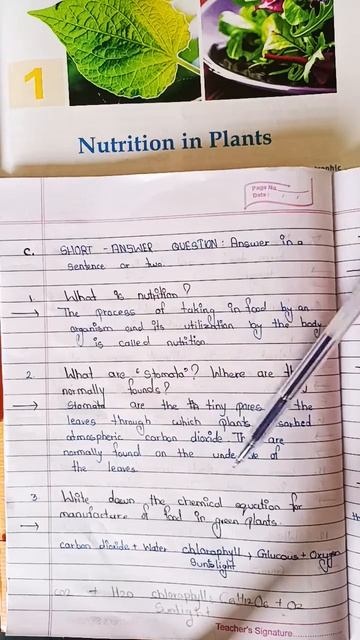 1
Nutrition in Plants
Page No.
Date:
C. SHORT - ANSWER QUESTION: Answer in a
sentence or two.
1. What is nutrition?
→ The process of taking in food by an
organism and its utilization by the body
is called nutrition
2. What are "stomata"? Where are
normally founds?
→ Stomata are the tiny pores the
leaves through which plants
atmospheric carbon dioxide. are
normally found on the of
the leaves.
3 Write down the chemical equation for
→ manufacture of food in green plants.
carbon dioxide + Water chlorophyll → Glucous + Oxygen
Sunlight
CO2 + H2O chlorophyll C6H12O6 + O2
Sunlight
Teacher's Signature